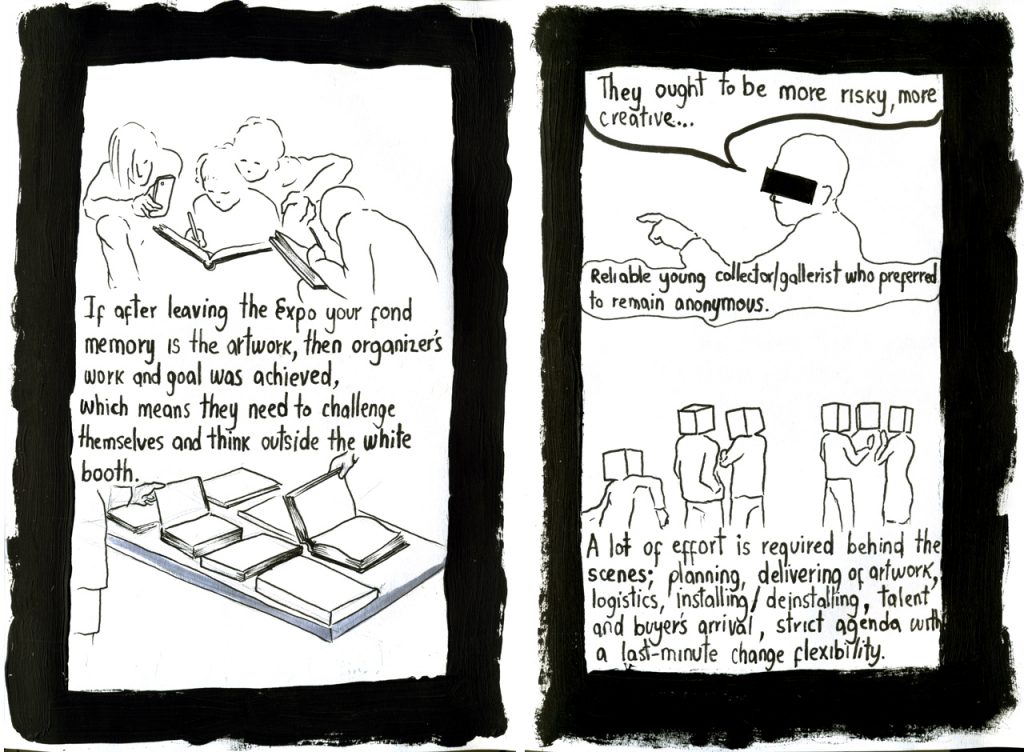 If after leaving the Expo your fond
memory is the artwork, then organizer's
work and goal was achieved,
which means they need to challenge
themselves and think outside the white
booth.
They ought to be more risky, more
creative...
Reliable young collector/gallerist who preferred
to remain anonymous.
A lot of effort is required behind the
scenes; planning, delivering of artwork,
logistics, installing/deinstalling, talent
and buyer's arrival, strict agenda with
a last-minute change flexibility.